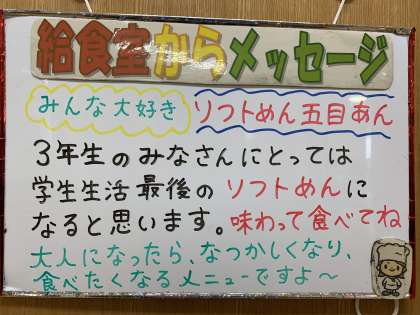 給食室からメッセージ
みんな大好き ソフトめん五目あん
3年生のみなさんにとっては
学生生活最後のソフトめんに
なると思います。味わって食べてね
大人になったら、なつかしくなり、
食べたくなるメニューですよ～